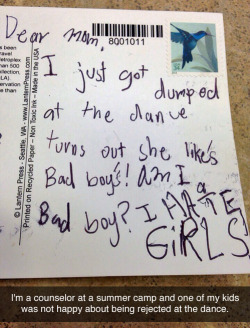 Dear mom,
8001011
I just got
dumped
at the dance
turns out she like's
Bad boy's! am I
a
Bad boy? I HATE
GiRLS
© Lantern Press - Seattle, WA - www.LanternPress.com
Printed on Recycled Paper – Non Toxic Ink – Made in the USA
I'm a counselor at a summer camp and one of my kids
was not happy about being rejected at the dance.